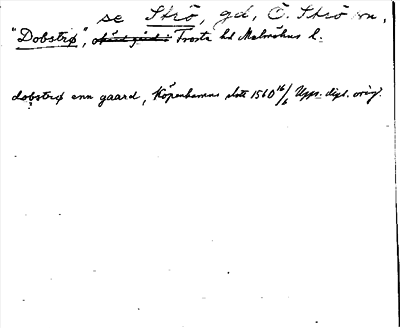 se Skrö, gd, Ö. Skrö sn,
"Dobstrø", Frosta hd Malmöhus l.
dobstrø enn gaard, Köpenhamns slott 1560 16/6 Upps. dipl. orig.